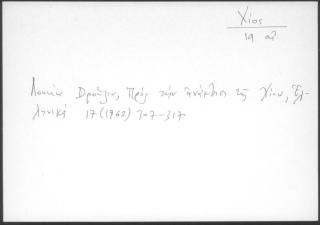 Χίος
19 αἰ.
Λουκία Δρούλια, Πρὸς τὴν ἀνάμνησι τῆς Χίου, Ἑλ-
ληνικά 17 (1962) 307-317